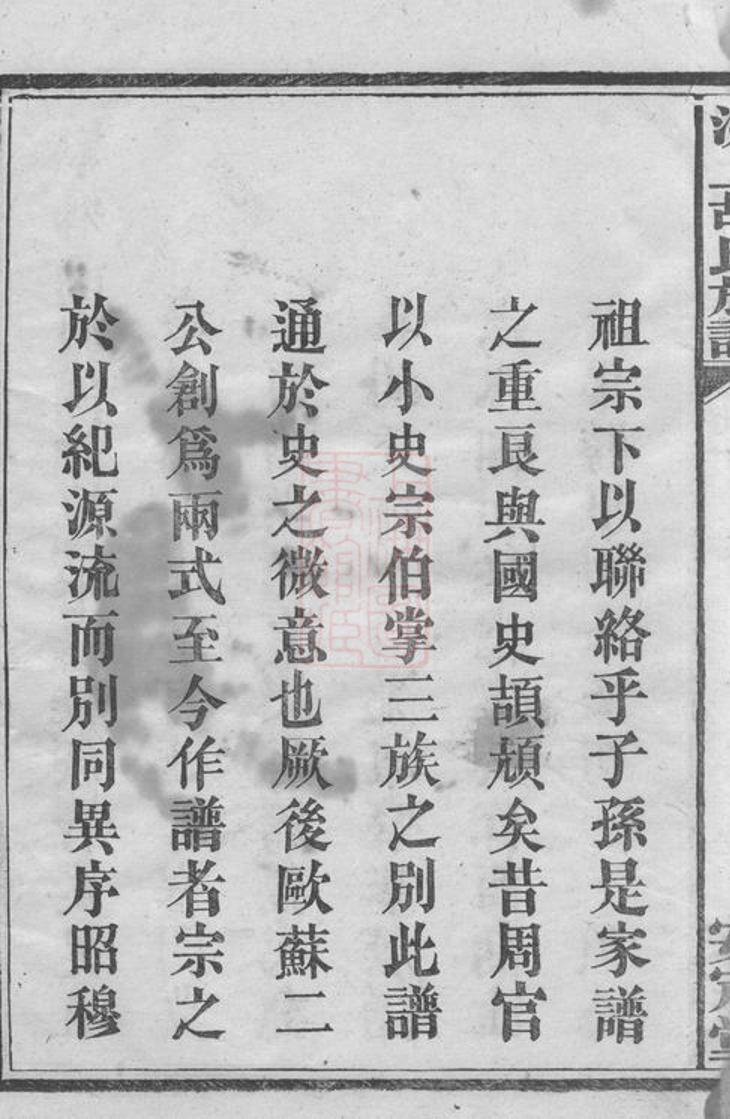 胡氏族譜
安定堂
祖宗下以聯絡乎子孫是家譜
之重良與國史頡頏矣昔周官
以小史宗伯掌三族之別此譜
通於史之微意也厥後歐蘇二
公創爲兩式至今作譜者宗之
於以紀源流而別同異序昭穆